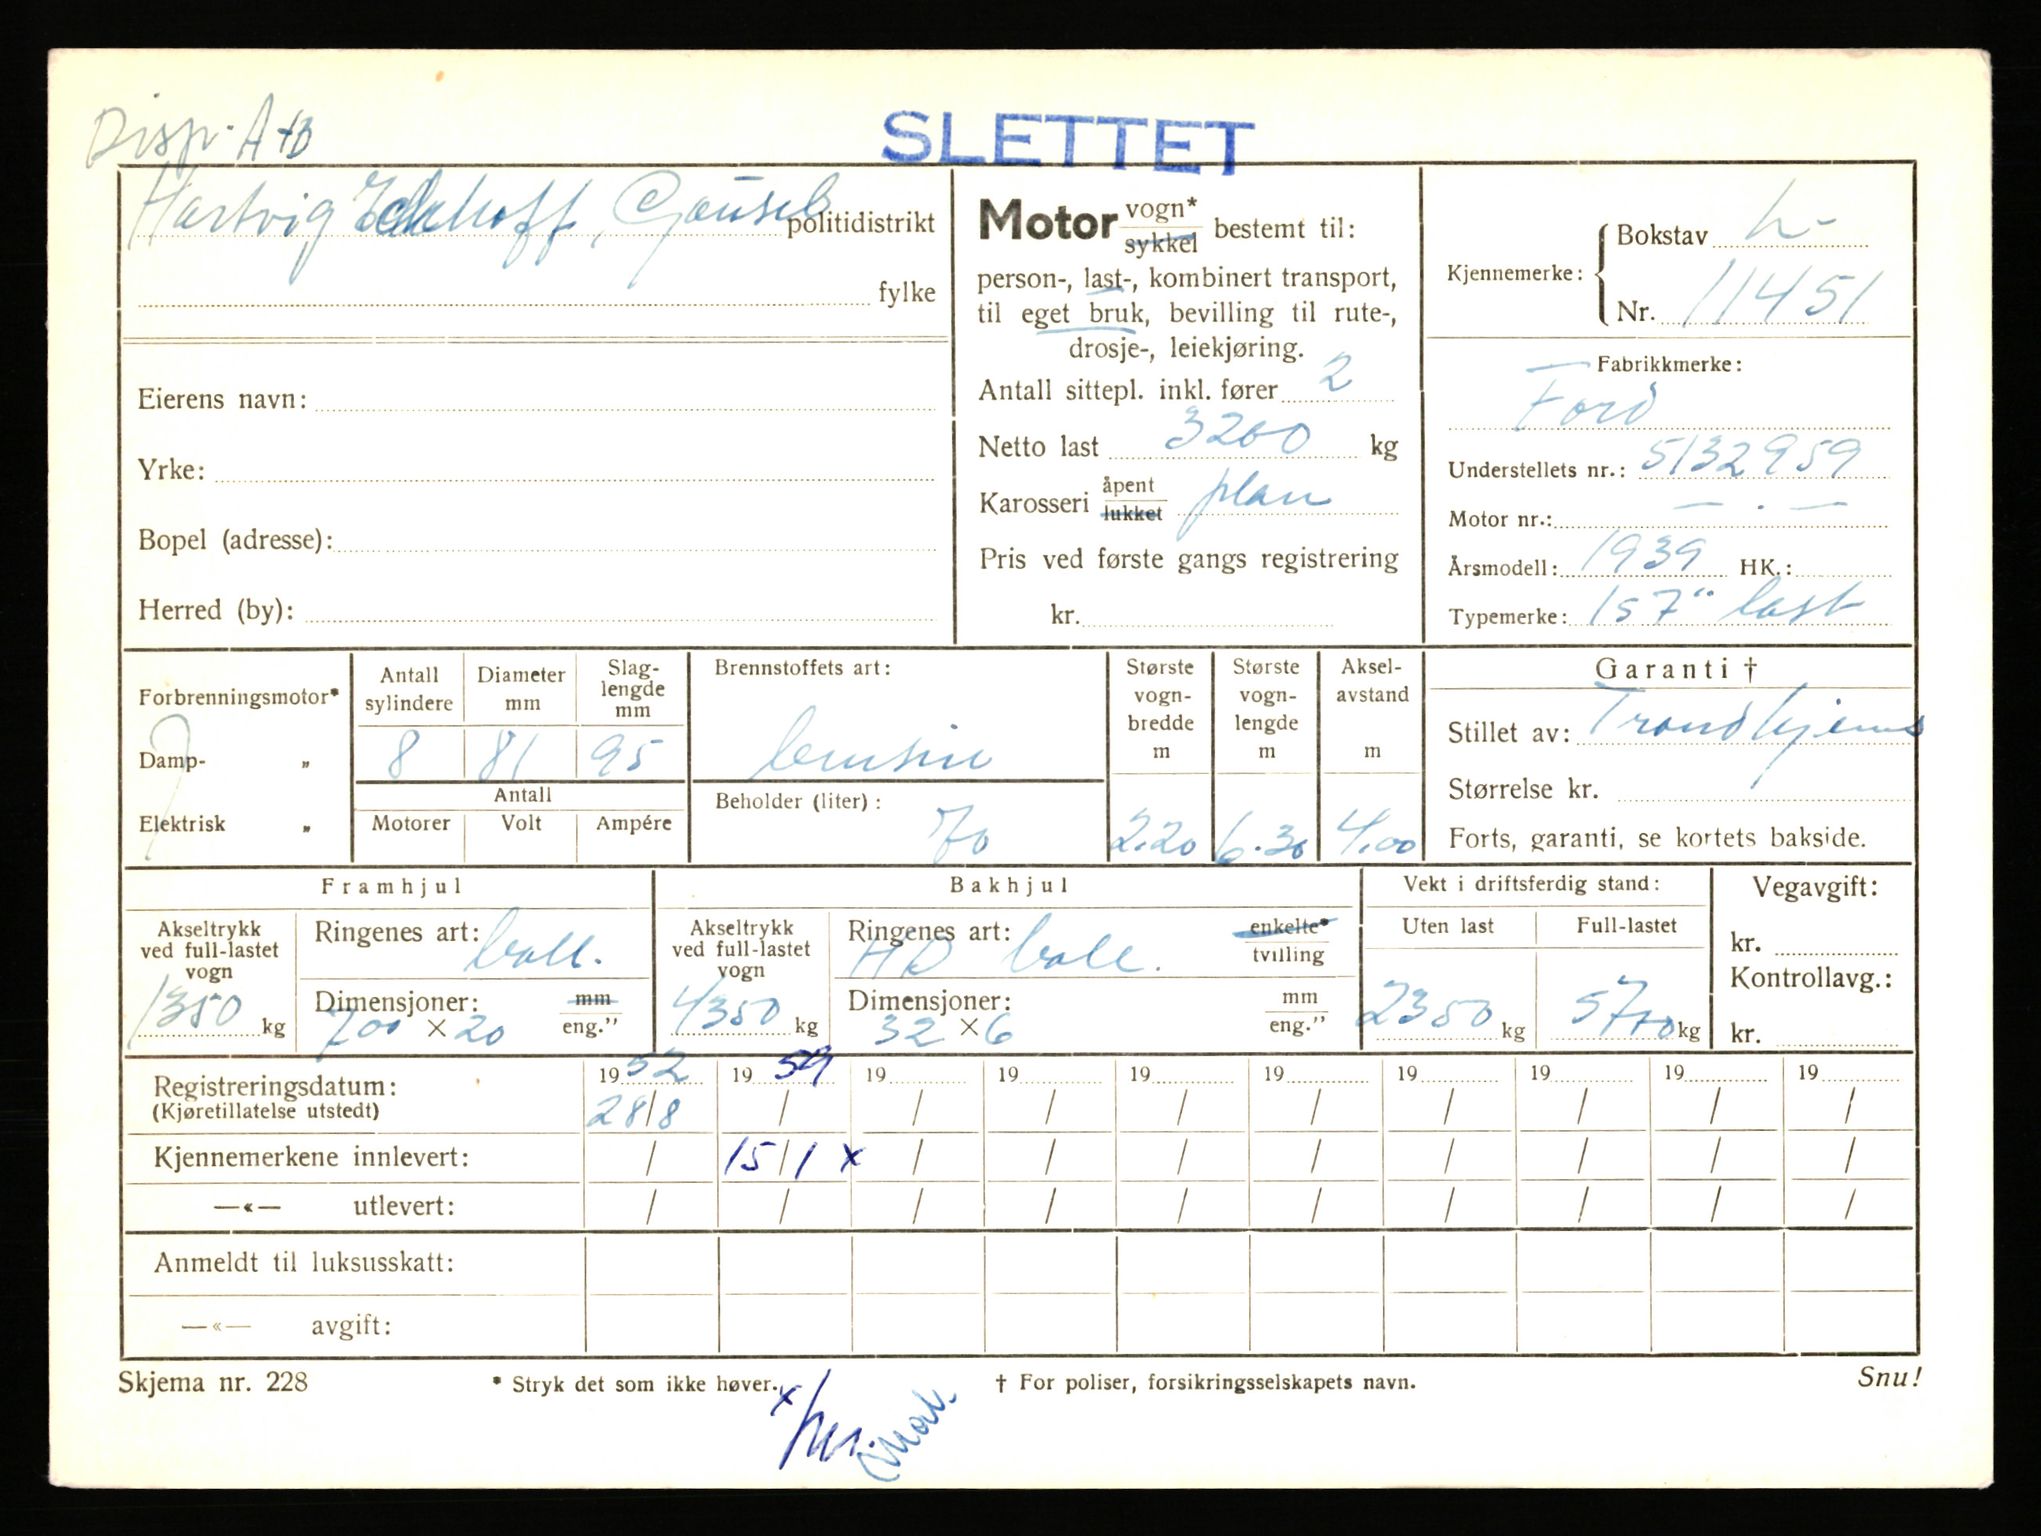 Disp. A+B
SLETTET
Hartvig Eckhoff, Gausel politidistrikt
fylke
Eierens navn:
Yrke:
Bopel (adresse):
Herred (by):
Motor vogn* sykkel bestemt til:
person-, last-, kombinert transport,
til eget bruk, bevilling til rute-,
drosje-, leiekjøring.
Antall sittepl. inkl. fører 2
Netto last 3200 kg
Karosseri åpent lukket plan
Pris ved første gangs registrering
kr.
Kjennemerke: Bokstav L-
Nr. 11451
Fabrikkmerke:
Ford
Understellets nr.: 5132959
Motor nr.: — . —
Årsmodell: 1939 HK.:
Typemerke: 157" last
Forbrenningsmotor*
Damp- „
Elektrisk „
Antall sylindere 8
Diameter mm 81
Slag-lengde mm 95
Antall
Motorer Volt Ampére
Brennstoffets art:
bensin
Beholder (liter): 70
Største vogn-bredde m 2.20
Største vogn-lengde m 6.30
Aksel-avstand m 4.00
Garanti †
Stillet av: Trondhjems
Størrelse kr.
Forts, garanti, se kortets bakside.
Framhjul
Akseltrykk ved full-lastet vogn 1350 kg
Ringenes art: ball.
Dimensjoner: 700 × 20 mm eng."
Bakhjul
Akseltrykk ved full-lastet vogn 4350 kg
Ringenes art: HD ball. enkelte* tvilling
Dimensjoner: 32 × 6 mm eng."
Vekt i driftsferdig stand:
Uten last 2350 kg
Full-lastet 5700 kg
Vegavgift:
kr.
Kontrollavg.:
kr.
Registreringsdatum: 1952 1959 19 19 19 19 19 19 19 19
(Kjøretillatelse utstedt) 28/8 / / / / / / / / /
Kjennemerkene innlevert: / 15/1 x / / / / / / / /
—«— utlevert: / / / / / / / / / /
Anmeldt til luksusskatt:
—«— avgift:
Skjema nr. 228 * Stryk det som ikke høver. † For poliser, forsikringsselskapets navn. Snu!
x